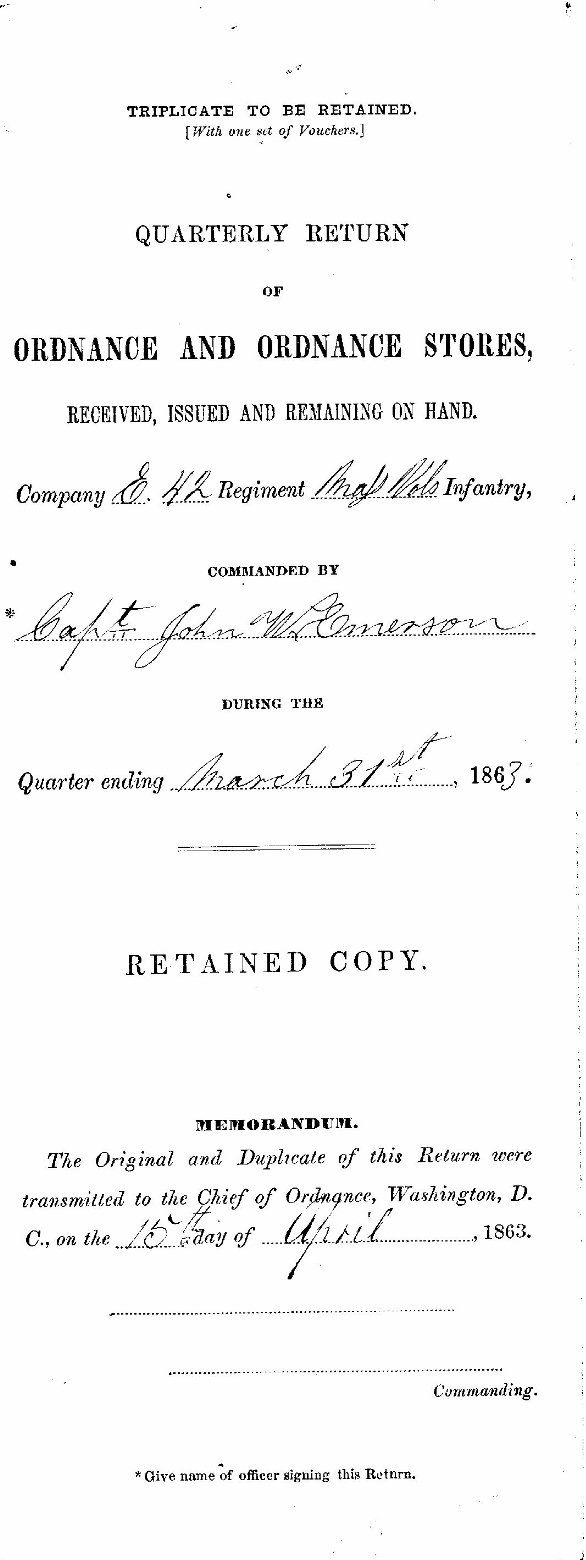 TRIPLICATE TO BE RETAINED.
[With one set of Vouchers.]
QUARTERLY RETURN
OF
ORDNANCE AND ORDNANCE STORES,
RECEIVED, ISSUED AND REMAINING ON HAND.
Company E. 42 Regiment Mass Vols Infantry,
COMMANDED BY
* Capt John W. Emerson
DURING THE
Quarter ending March 31st, 1863.
RETAINED COPY.
MEMORANDUM.
The Original and Duplicate of this Return were
transmitted to the Chief of Ordnance, Washington, D.
C., on the 15th day of April, 1863.
Commanding.
* Give name of officer signing this Return.